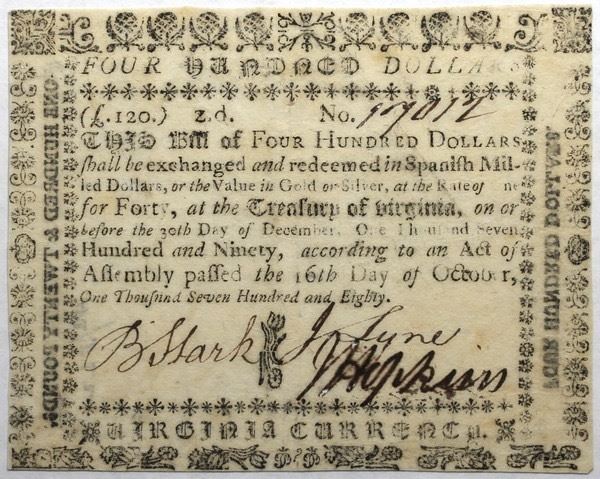 FOUR HUNDNED DOLLARS
(£.120.) z.d. No. 17012
THIS Bill of FOUR HUNDRED DOLLARS
shall be exchanged and redeemed in Spanish Mil-
led Dollars, or the Value in Gold or Silver, at the Rate of ne
for Forty, at the Treasury of Virginia, on or
before the 30th Day of December, One Thousand Seven
Hundred and Ninety, according to an Act of
Assembly passed the 16th Day of October,
One Thousand Seven Hundred and Eighty.
B Stark
Jn Lyne
J Hopkins
VIRGINIA CURRENCY.
ONE HUNDRED & TWENTY POUNDS.
FOUR HUNDRED DOLLARS